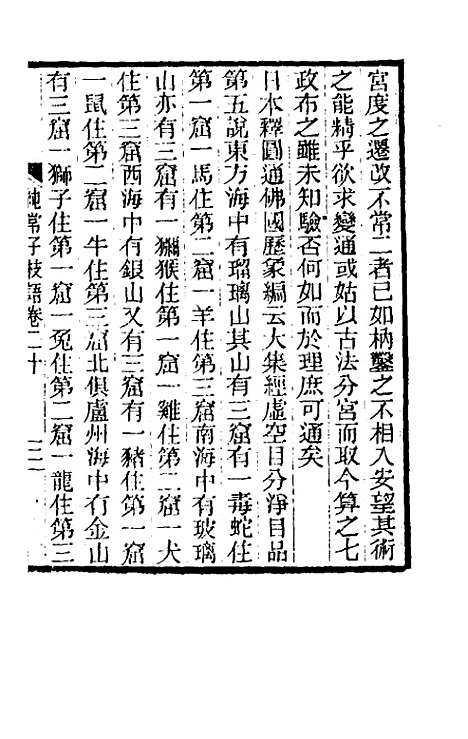 宮度之遷改不常二者已如枘鑿之不相入安望其術
之能精乎欲求變通或姑以古法分宮而取今算之七
政布之雖未知驗否何如而於理庶可通矣
日本釋圓通佛國歷象編云大集經虛空目分淨目品
第五說東方海中有瑠璃山其山有三窟有一毒蛇住
第一窟一馬住第二窟一羊住第三窟南海中有玻璃
山亦有三窟有一獼猴住第一窟一雞住第二窟一犬
住第三窟西海中有銀山又有三窟有一豬住第一窟
一鼠住第二窟一牛住第三窟北俱盧州海中有金山
有三窟一獅子住第一窟一兔住第二窟一龍住第三
純常子枝語卷二十 三